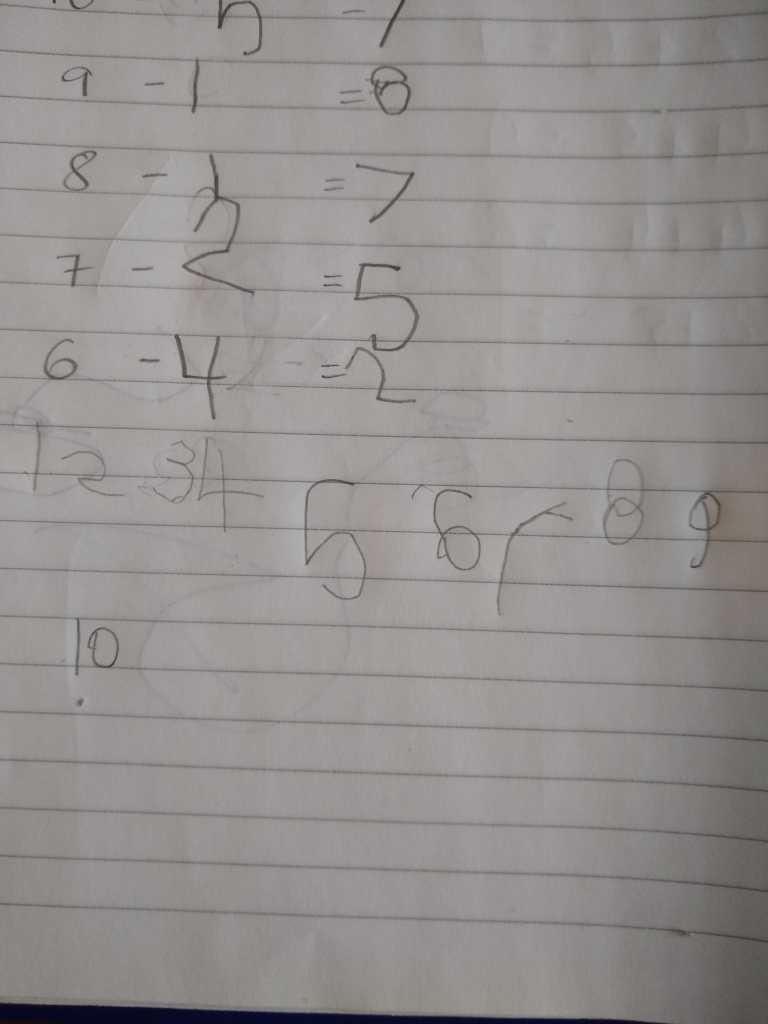 9 - 1 = 8
8 - 1 = 7
7 - 2 = 5
6 - 4 = 2
1 2 3 4 5 6 7 8 9
10